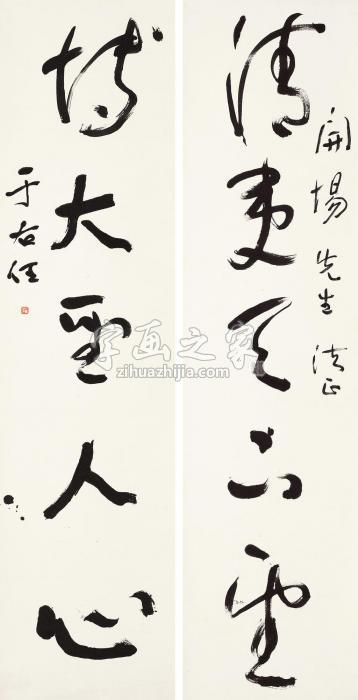 開先生法正
清夷天下望
博大聖人心
于右任
字画之家
zihuazhijia.com